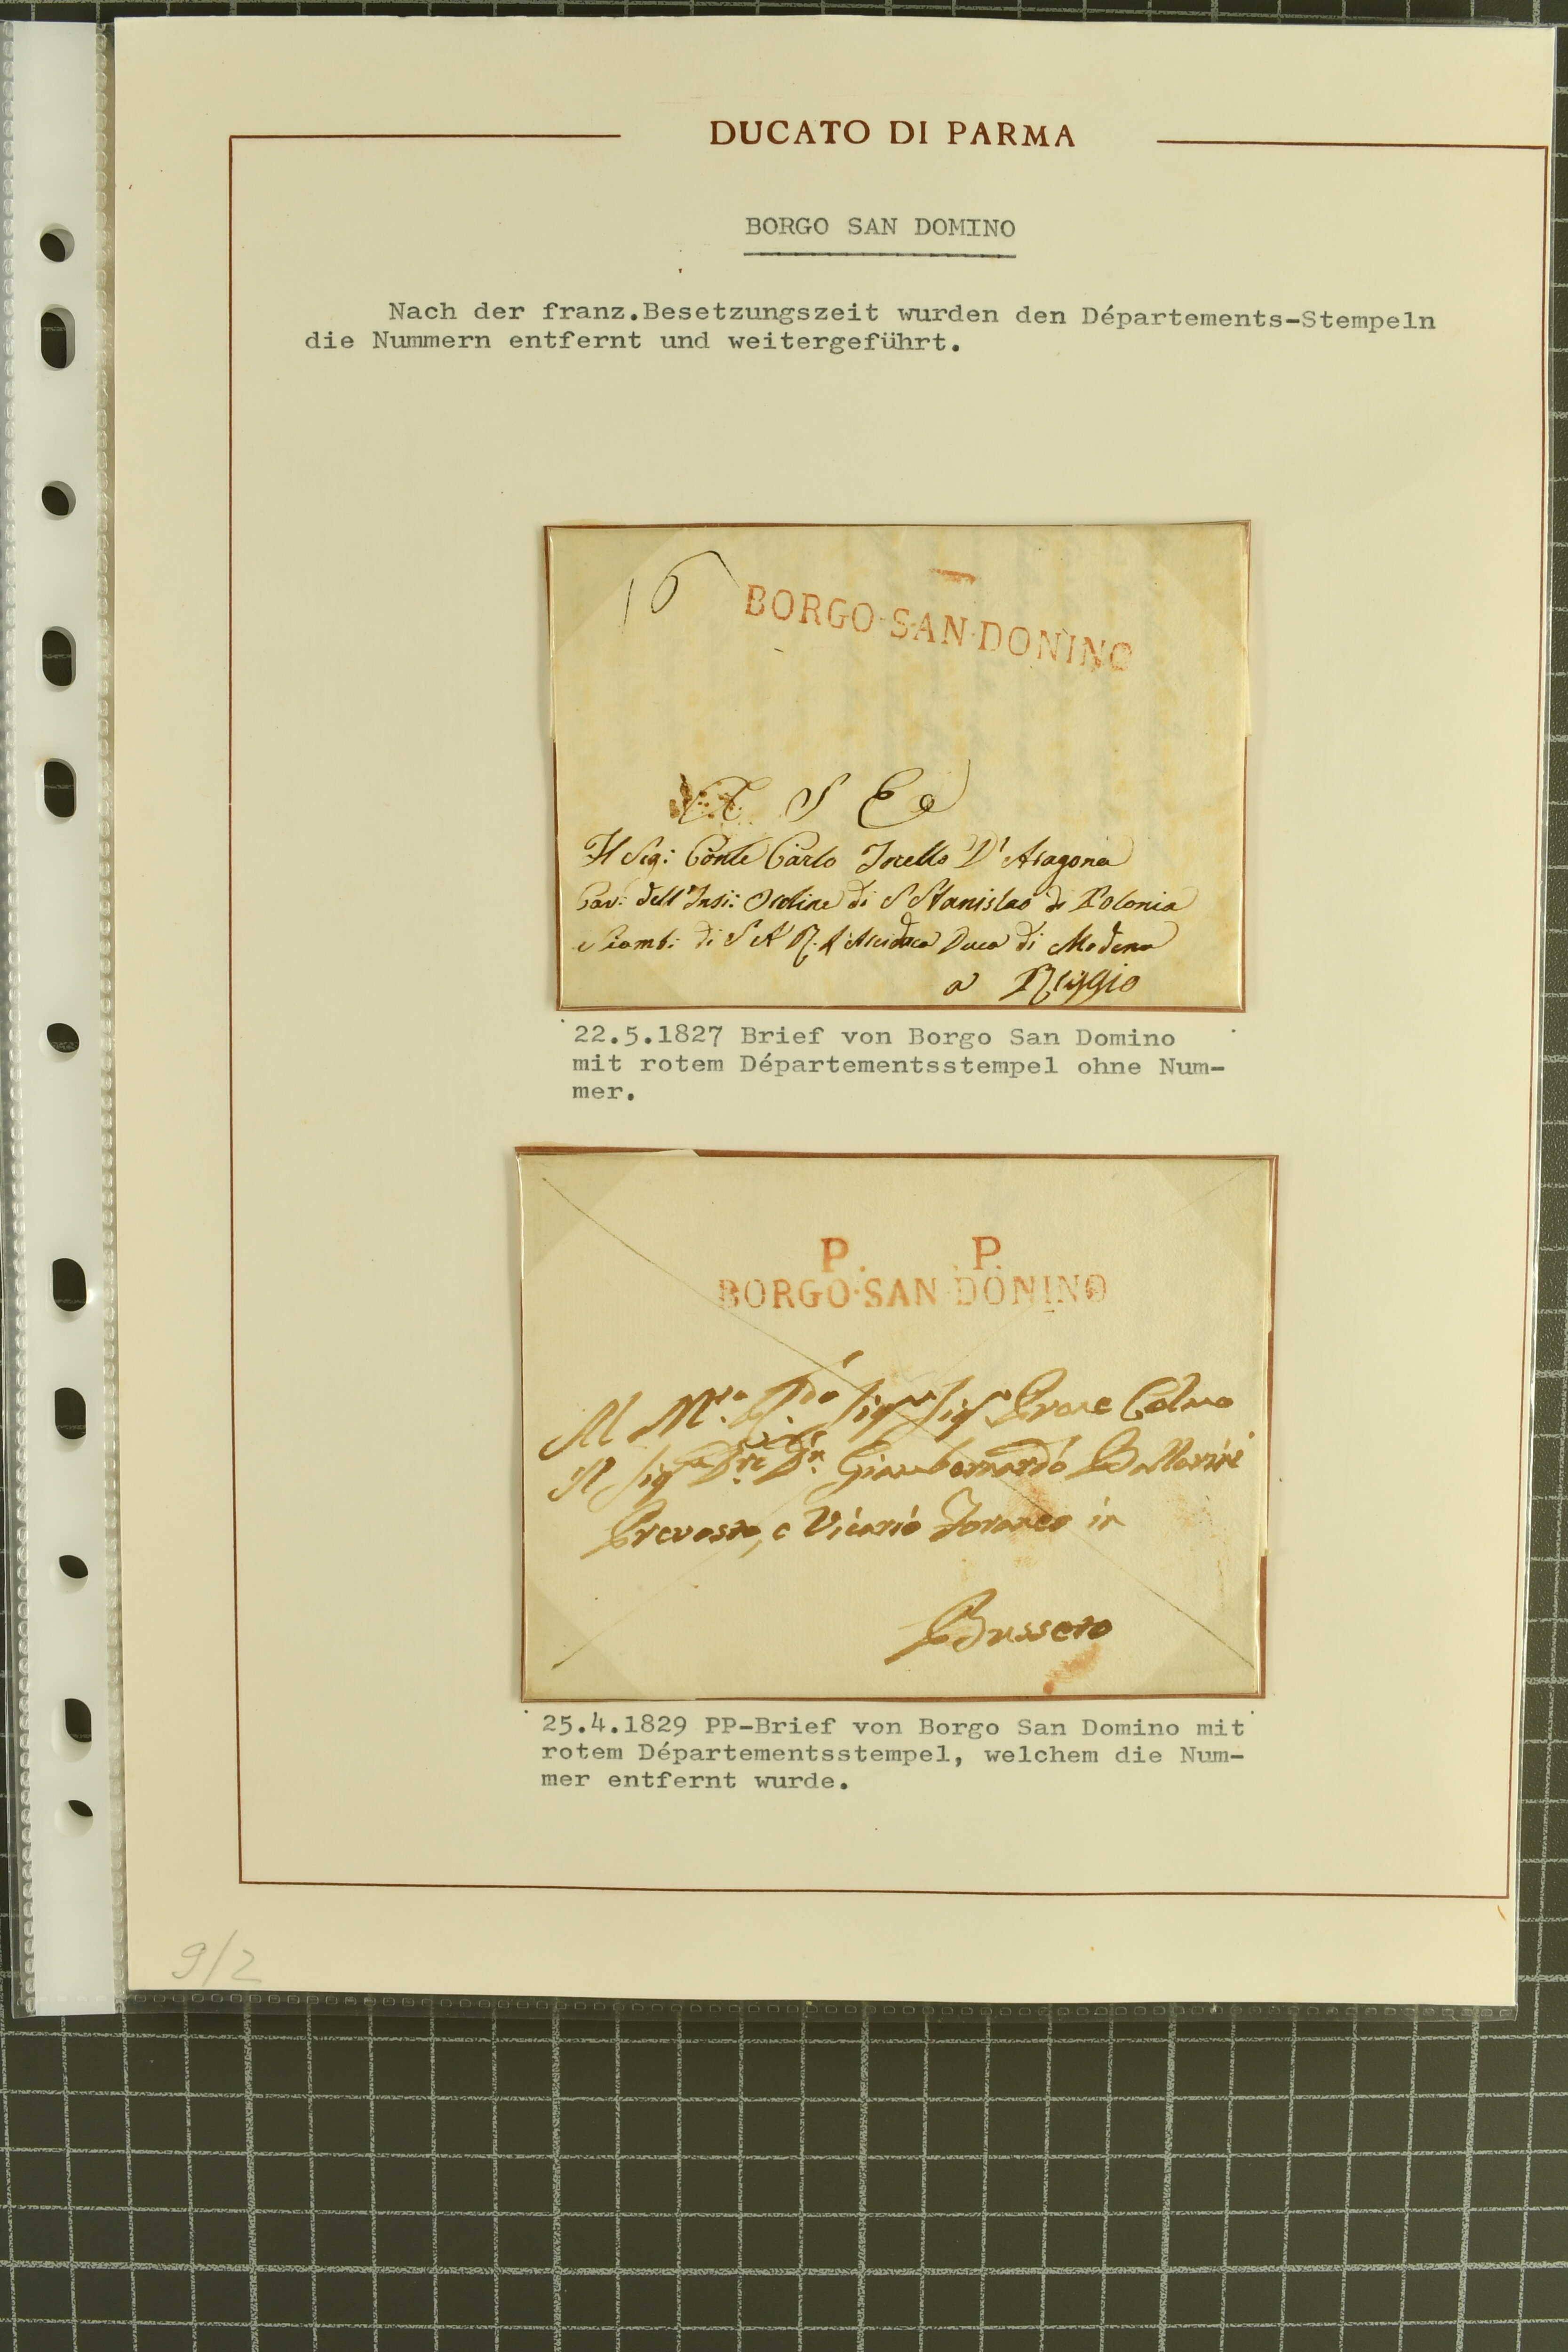 DUCATO DI PARMA
BORGO SAN DOMINO
Nach der franz.Besetzungszeit wurden den Départements-Stempeln
die Nummern entfernt und weitergeführt.
16
BORGO·SAN·DONINO
A S E
Il Sig: Conte Carlo D'Aragona
Cav: dell' Insi: Ordine di S Stanislao di Polonia
e Ciamb: di S A R. Duca di Modena
a Reggio
22.5.1827 Brief von Borgo San Domino
mit rotem Départementsstempel ohne Num-
mer.
P. P.
BORGO·SAN·DONINO
Al
Il Giambernardo Ballarini
Prevosto, e Vicario Foraneo in
Busseto
25.4.1829 PP-Brief von Borgo San Domino mit
rotem Départementsstempel, welchem die Num-
mer entfernt wurde.
9/2